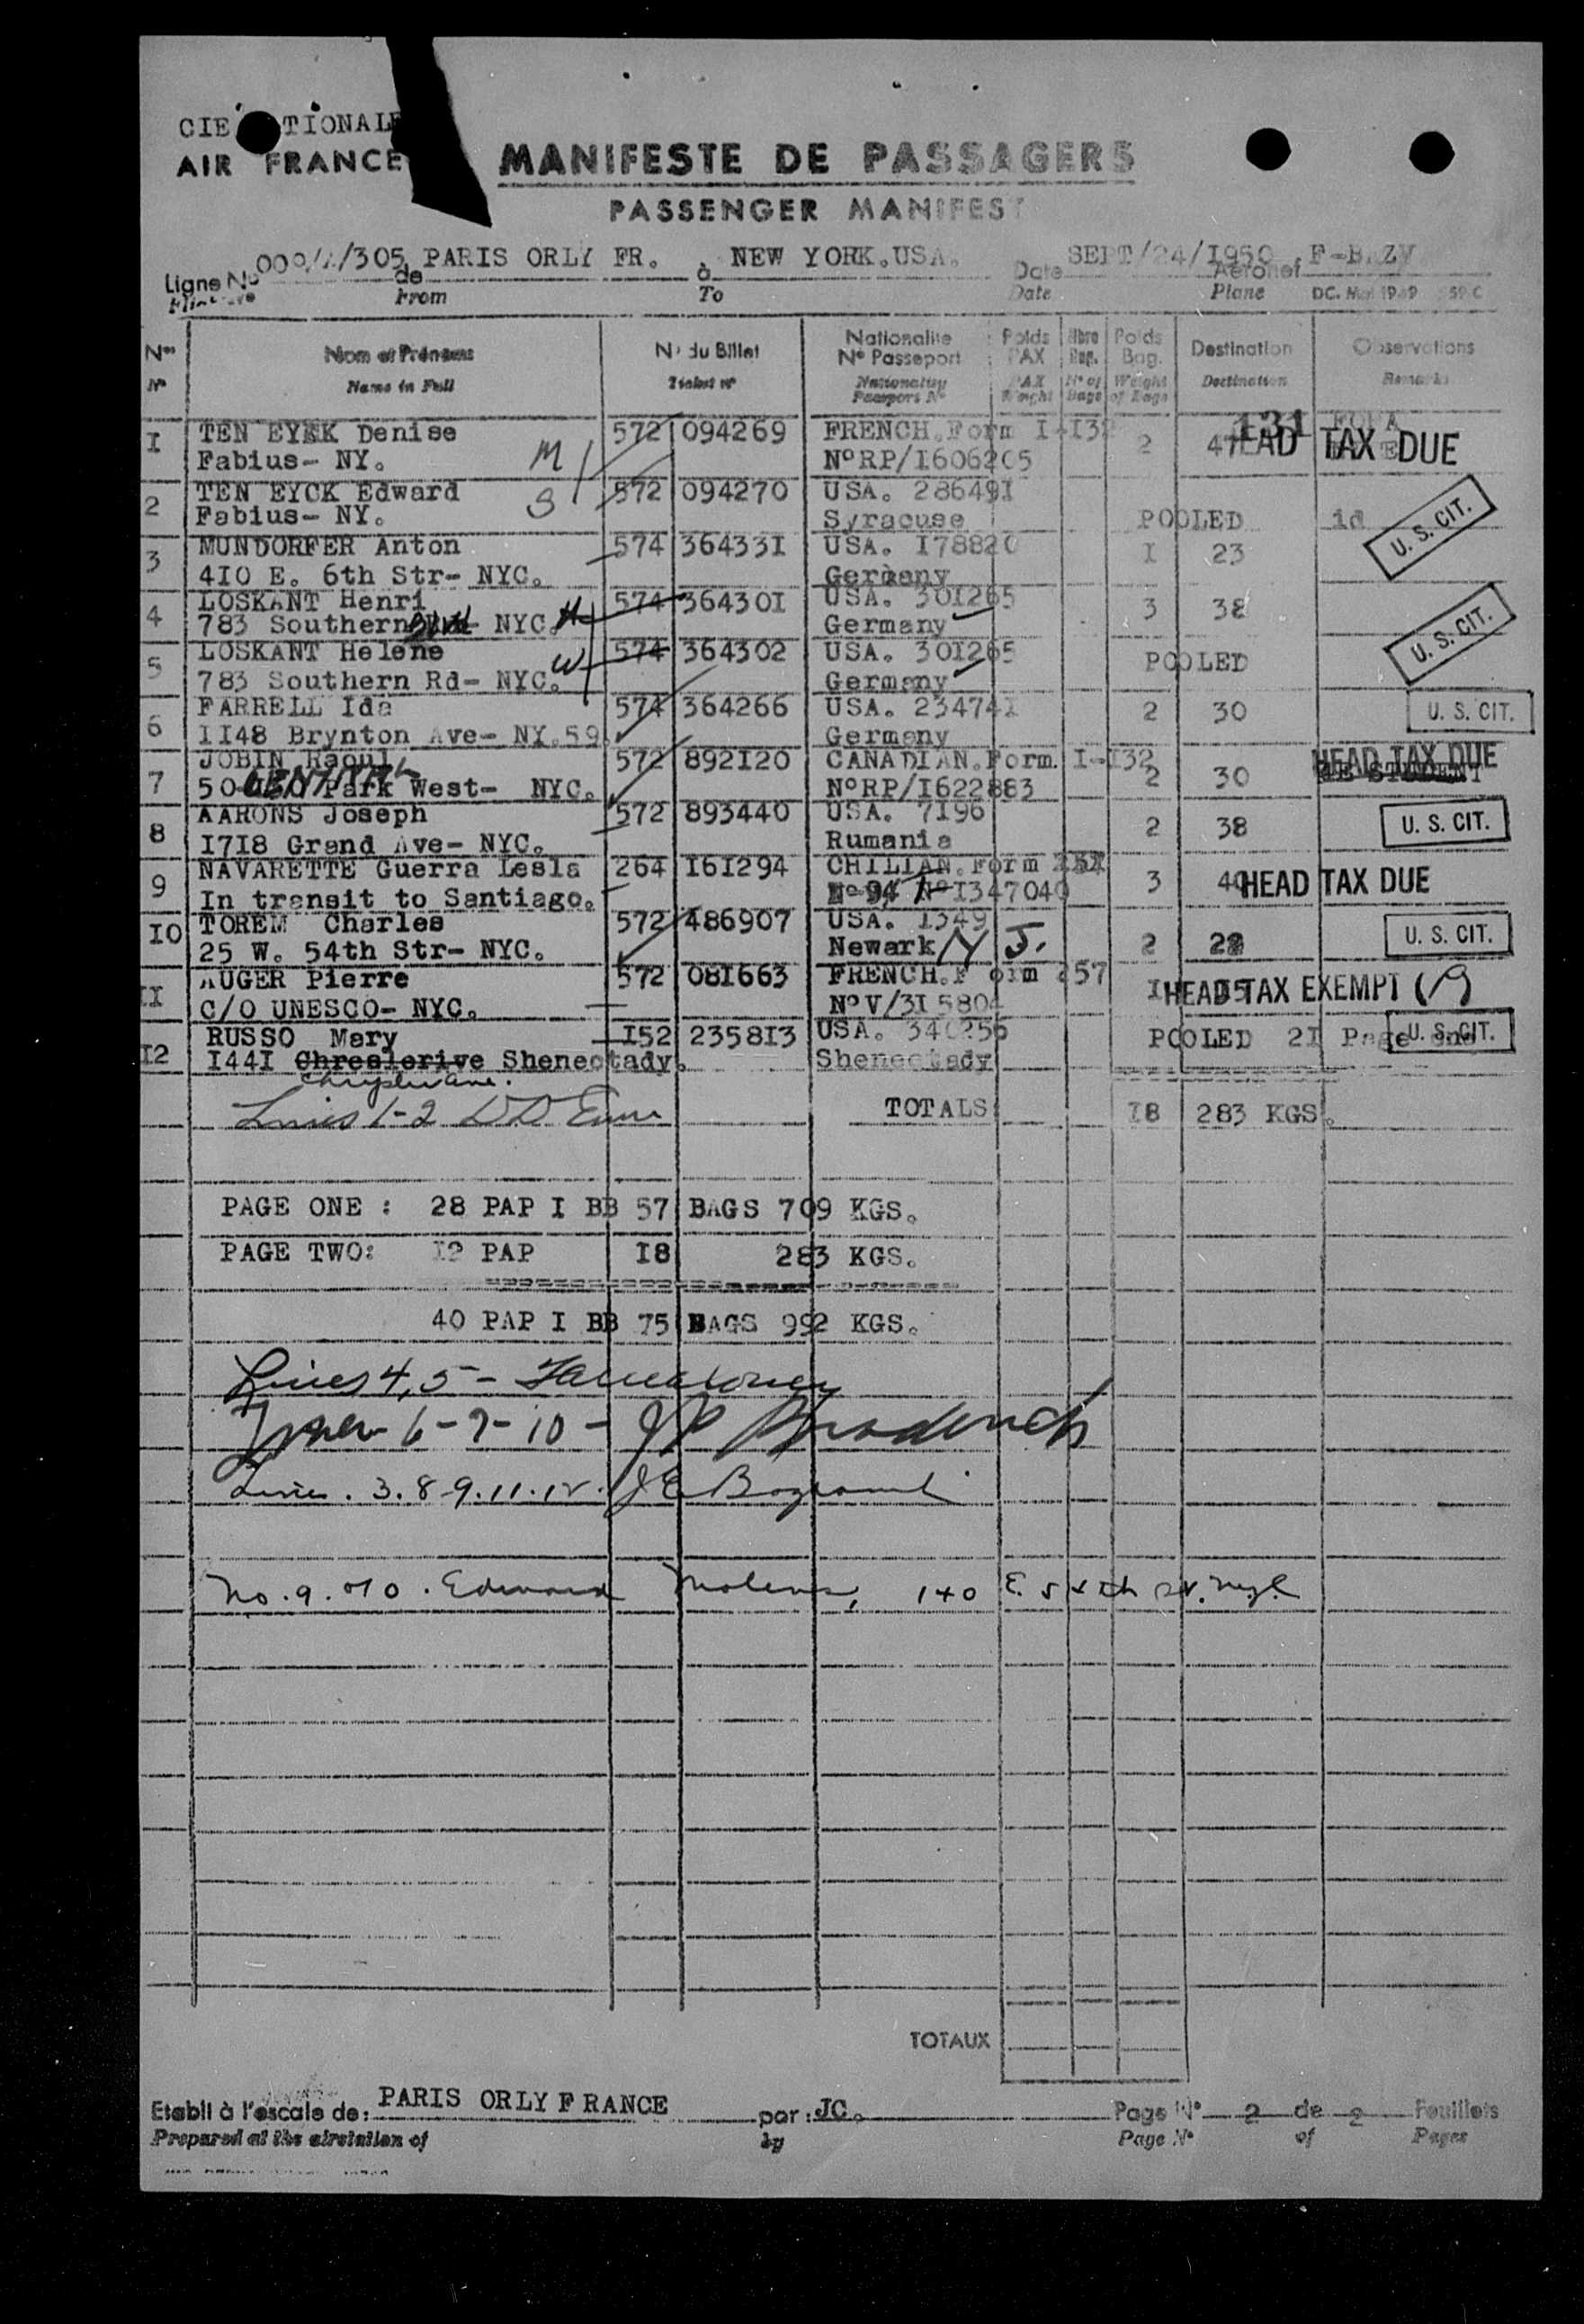 CIE TIONALE
AIR FRANCE
MANIFESTE DE PASSAGERS
PASSENGER MANIFEST
Ligne No /305 de PARIS ORLY FR. à NEW YORK.USA. Date SEPT/24/1950 Aéronef F-BAZV
From To Date Plane DC.
Nos Nom et Prénoms N° du Billet Nationalité N° Passeport Poids PAX Nbre Bag. Poids Bag. Destination Observations
N° Name in Full Ticket n° Nationality Passport N° PAX Weight N° of Bags Weight of Bags Destination Remarks
I TEN EYEK Denise 572 094269 FRENCH.Form I-I32 2 47 131
Fabius- NY. M N°RP/I606205 HEAD TAX DUE
2 TEN EYCK Edward S 572 094270 USA. 286491
Fabius- NY. Syracuse POOLED id U. S. CIT.
3 MUNDORFER Anton 574 36433I USA. I78820 I 23
4I0 E. 6th Str- NYC. Germany
4 LOSKANT Henri 574 36430I USA. 30I265 3 38
783 Southern Blvd- NYC. H Germany U. S. CIT.
5 LOSKANT Helene 574 364302 USA. 30I265 POOLED
783 Southern Rd- NYC. W Germany
6 FARRELL Ida 574 364266 USA. 23474I 2 30 U. S. CIT.
II48 Brynton Ave- NY.59. Germany
7 JOBIN Raoul 572 892I20 CANADIAN.Form. I-I32 2 30 HEAD TAX DUE
50 CENTRAL Park West- NYC. N°RP/I622883
8 AARONS Joseph 572 893440 USA. 7I96 2 38 U. S. CIT.
I7I8 Grand Ave- NYC. Rumania
9 NAVARETTE Guerra Lesla 264 I6I294 CHILIAN.Form 3 40 HEAD TAX DUE
In transit to Santiago. N°94 N°I347040
IO TOREM Charles 572 486907 USA. I349 2 28 U. S. CIT.
25 W. 54th Str- NYC. Newark N J.
II AUGER Pierre 572 08I663 FRENCH.F orm 257 I HEAD TAX EXEMPT
C/O UNESCO- NYC. N°V/3I5804
I2 RUSSO Mary I52 2358I3 USA. 340256 POOLED 2I Page one U. S. CIT.
I44I Chreslerive Shenectady. Shenectady
Chrysler ave.
Lines 1-2 TOTALS I8 283 KGS.
PAGE ONE : 28 PAP I BB 57 BAGS 709 KGS.
PAGE TWO: I2 PAP I8 283 KGS.
40 PAP I BB 75 BAGS 992 KGS.
Lines 4,5 -
6-7-10 -
Lines . 3.8-9.11.12.
No. 9. Edward 140 E.
TOTAUX
Etabli à l'escale de: PARIS ORLY FRANCE par: JC. Page N° 2 de 2 Feuillets
Prepared at the airstation of by Page N° of Pages